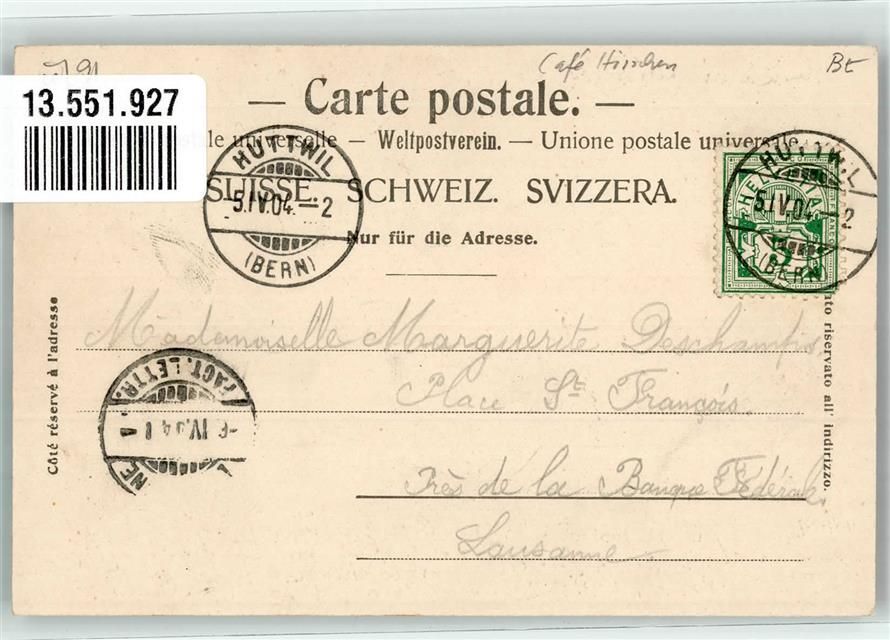 Café Hirschen Bt
13.551.927
— Carte postale. —
tale universelle – Weltpostverein. — Unione postale universale
SUISSE. SCHWEIZ. SVIZZERA.
Nur für die Adresse.
HUTTWIL
5.IV.04.–2
(BERN)
HUTTWIL
5.IV.04 2
(BERN)
HELVETIA
5
Côté réservé à l'adresse
Mademoiselle Marguerite Deschamps,
Place St François.
Près de la Banque Fédérale,
Lausanne
FACT. LETTR.
IV.04
NE
nto riservato all' indirizzo.